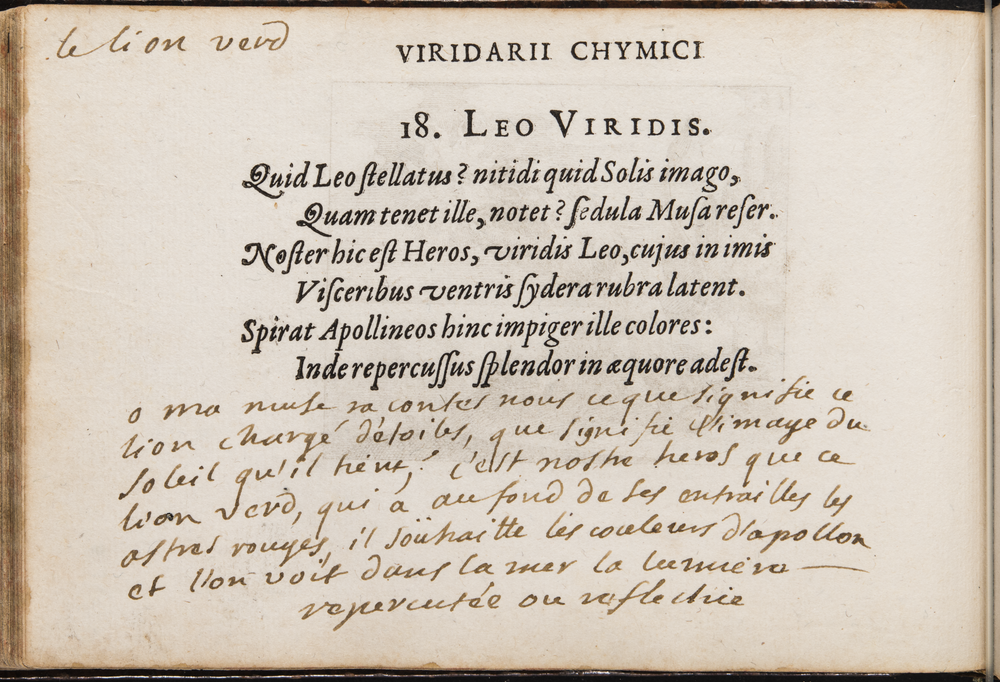 le lion verd
VIRIDARII CHYMICI
18. LEO VIRIDIS.
Quid Leo ſtellatus? nitidi quid Solis imago,
Quam tenet ille, notet? ſedula Muſa reſer.
Noſter hic eſt Heros, viridis Leo, cujus in imis
Viſceribus ventris ſydera rubra latent.
Spirat Apollineos hinc impiger ille colores:
Inde repercuſſus ſplendor in æquore adeſt.
o ma muse racontes nous ce que signifie ce
lion chargé d'étoiles, que signifie l'image du
soleil qu'il tient? c'est nostre heros que ce
lion verd, qui a au fond de ses entrailles les
astres rouges, il souhaitte les couleurs d'apollon
et l'on voit dans la mer la lumiere
repercutée ou reflechie